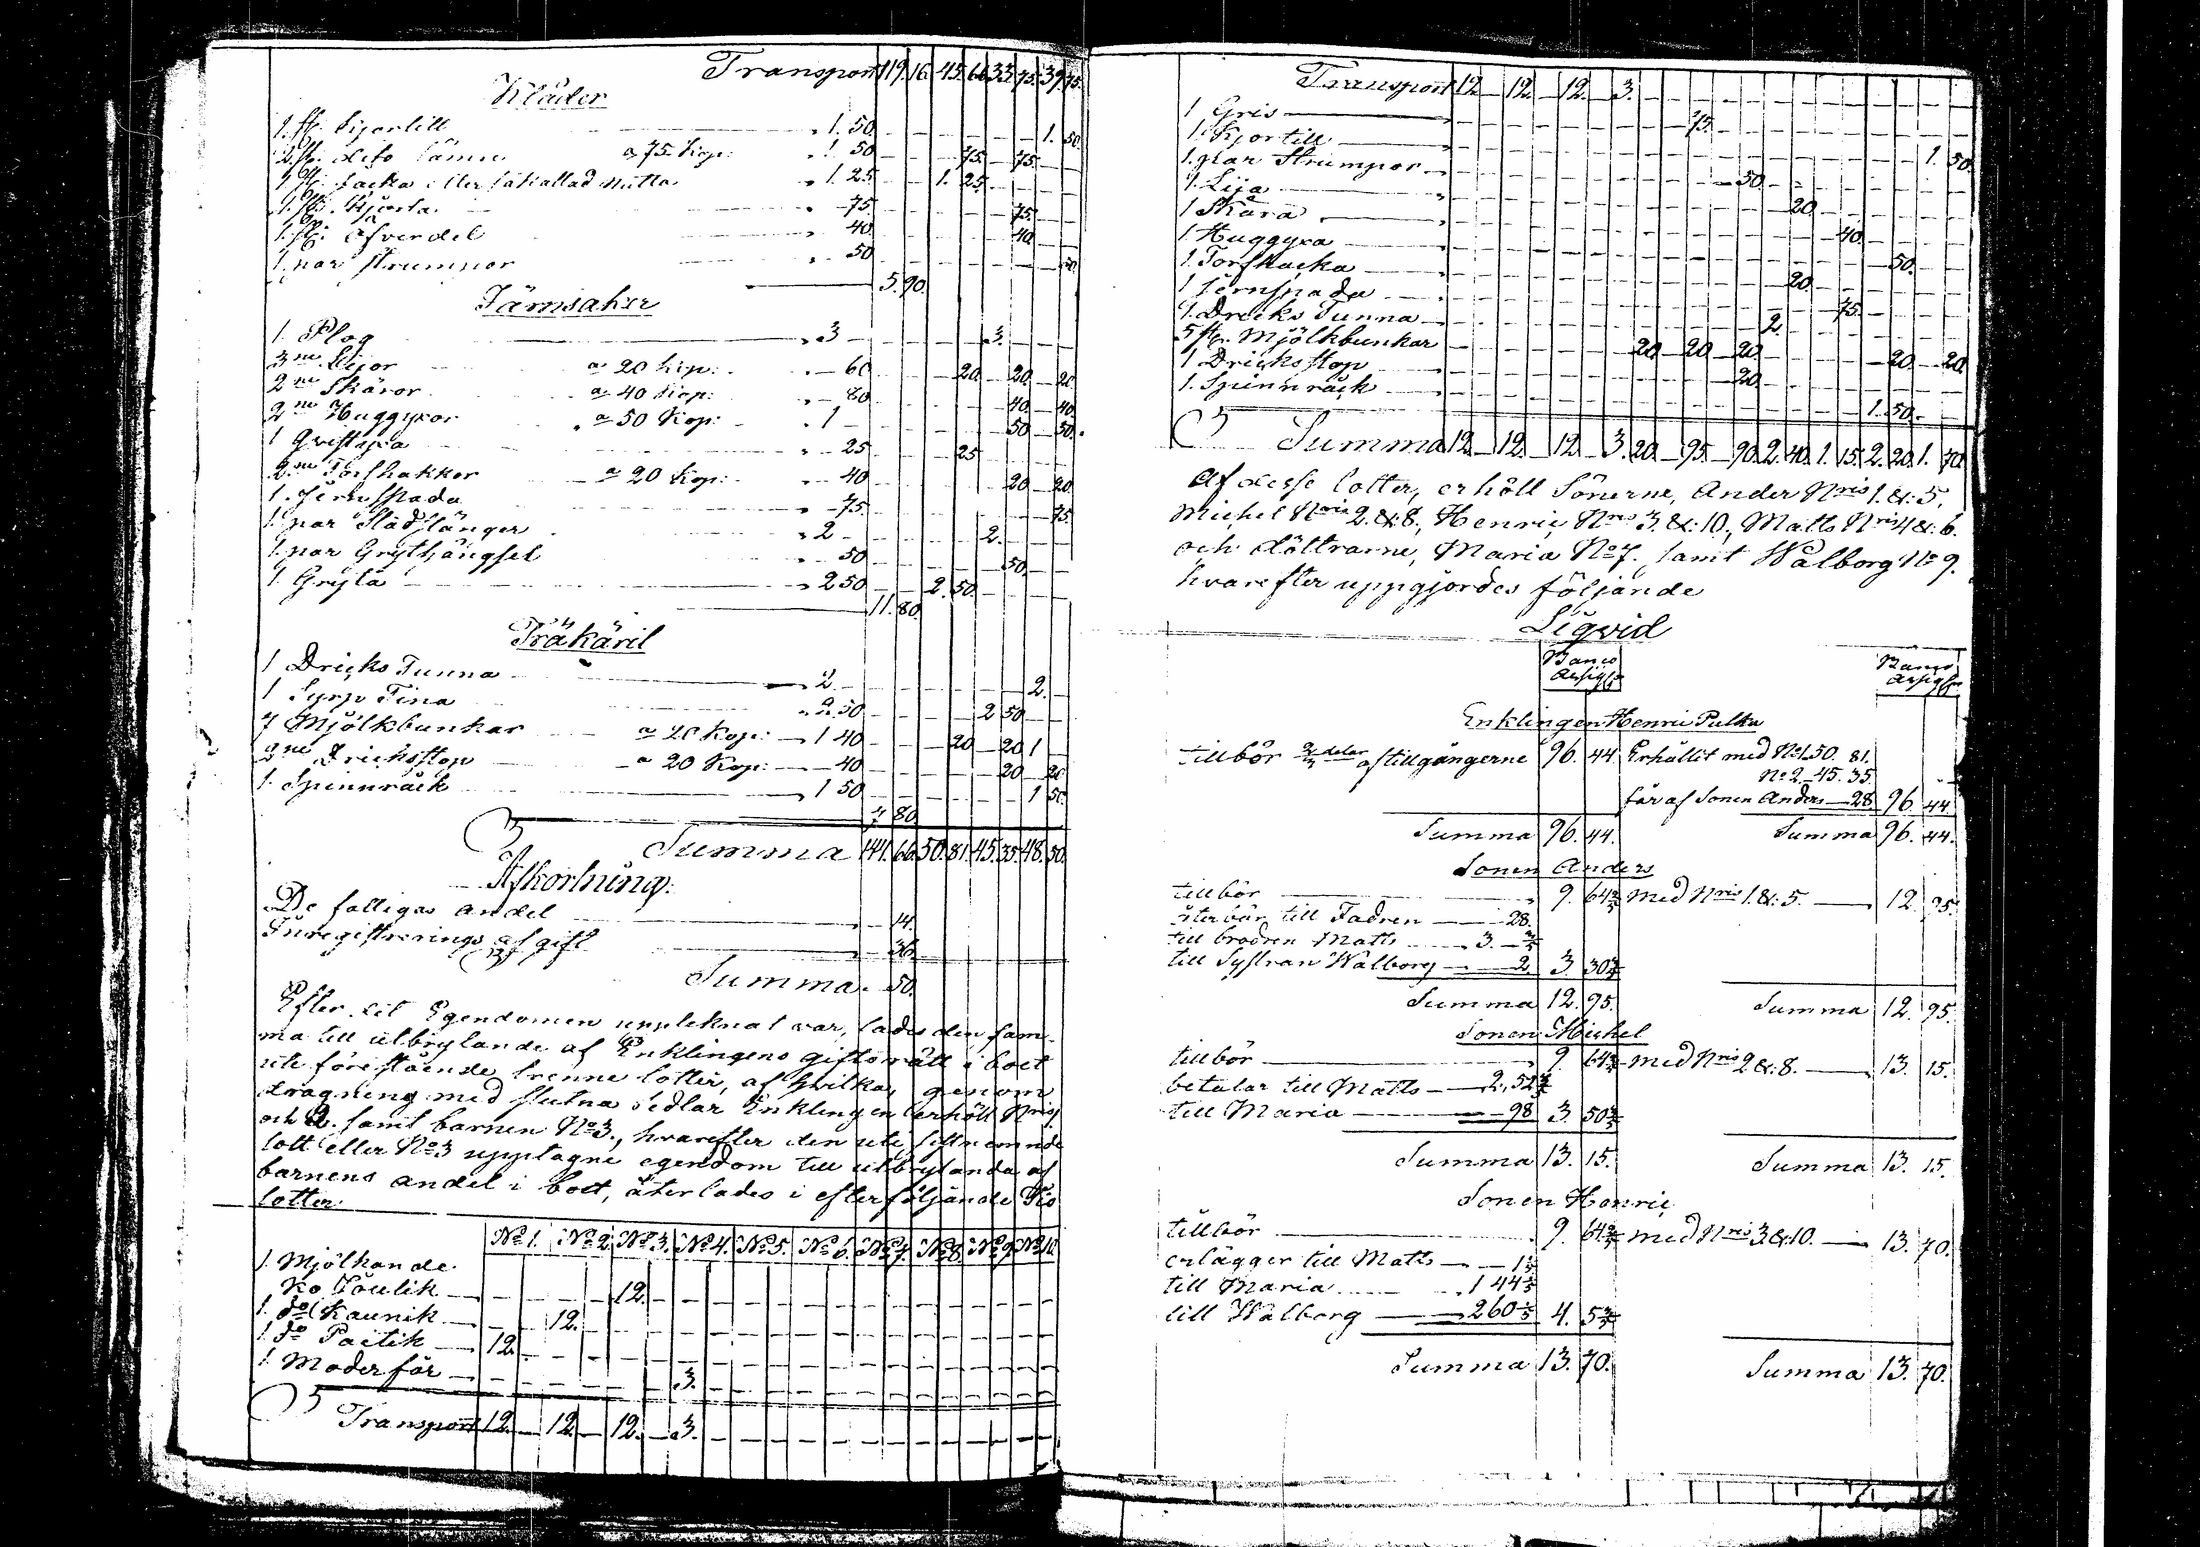 Transport 119. 16. 45. 66. 33. 75. 39. 75.
Kläder
1. st. Kjortill " 1. 50. 1. 50
2. st. dito sämre a 75 Kop: " 1 50 75. 75.
1 st. jacka eller så kallad mitta " 1. 25. 1. 25.
1. st. Skjorta " 75. 75.
1. st. Afverdel " 40. 40.
1. par strumpor " 50 50
5. 90.
Järnsaker
1. Plog " 3 3.
3ne Lijor a 20 Kop: 60 20. 20. 20
2ne Skäror a 40 Kop: 80 40. 40.
2ne Huggyxor a 50 Kop: 1 50 50.
1 Qvistyxa 25 25
2ne Torfhakkor a 20 Kop: 40 20 20
1. Jernspada 75. 75.
1. par Slädstänger " 2 2.
1. par Grythängsel 50 50
1. Gryta " 2 50 2. 50
11. 80
Träkäril
1 Dricks Tunna 2 2.
1 Syrp Tina " 2. 50 2 50
7 Mjölkbunkar a 20 Kop: 1 40 20 20 1
2ne Dricksstop a 20 Kop: 40 20 20
1. Spinnråck 1 50 1 50
7 80
Summa 141. 66. 50. 81. 45. 35. 48. 50.
Afkortning:
De fattigas andel 14.
Inregistrerings afgift 36
Summa. 50.
Efter det Egendomen uppteknat var, lades den sam-
ma till utbrytande af Enklingens giftorätt i boet
ute föreståènde trenne lotter, af hvilka, genom
dragning med slutna sedlar Enklingen erhöll Nris 1
och 2. samt barnen No 3., hvarefter den uti sistnemnde
lott eller No 3 upptagne egendom till utbrytande af
barnens andel i boet, återlades i efterföljande Tio
lotter.
No 1. No 2. No 3. No 4. No 5. No 6. No 7. No 8. No 9. No 10
1. Mjölkande
Ko Joulik 12.
1. do Kaunik 12.
1. do Paitik 12.
1. Moderfår 3.
Transport 12. 12. 12. 3.
Transport 12 12. 12. 3.
1 Gris 75.
1. Kjortill 1. 50.
1. par Strumpor 50.
1. Lija 20.
1 Skära 40.
1. Huggyxa 50.
1. Torfhacka 20.
1 Jernspada 75.
1. Dricks Tunna 2
5 st. Mjölkbunkar 20 20 20 20 20
1 Dricksstop 20.
1. Spinnråck 1. 50.
Summa 12. 12. 12. 3. 20. 95. 90. 2. 40. 1. 15. 2. 20. 1. 70.
Af desse lotter, erhöll Sönerne, Ander Nris 1. &. 5.
Michel Nris 2. &. 8., Henric Nris 3 &. 10, Matts Nris 4 &. 6.
och döttrarne, Maria No 7. samt Walborg No 9.
hvarefter uppgjordes följande
Liqvid
Banco Assig: Banco Assig:
Enklingen Henric Pulka
tillbör 2/3 delar af tillgångerne 96. 44 Erhållit med No 1. 50. 81.
No 2. 45. 35
får af Sonen Anders 28 96. 44
Summa 96. 44. Summa 96. 44.
Sonen Anders
tillbör 9. 64 2/5 med Nris 1. &. 5. 12. 95.
återbär till Fadren 28.
till brodren Matts 3.
till Systran Walborg 2 3 30 3/5
Summa 12. 95. Summa 12. 95.
Sonen Michel
tillbör 9. 64 2/5 med Nris 2 &. 8. 13. 15.
betalar till Matts 2. 52 3/5
till Maria 98 3. 50 3/5
Summa 13. 15. Summa 13. 15.
Sonen Henric
tillbör 9. 64 2/5 med Nris 3. &. 10. 13. 70.
erlägger till Matts
till Maria 1 44
till Walborg 260 4. 5 3/5
Summa 13. 70. Summa 13. 70.